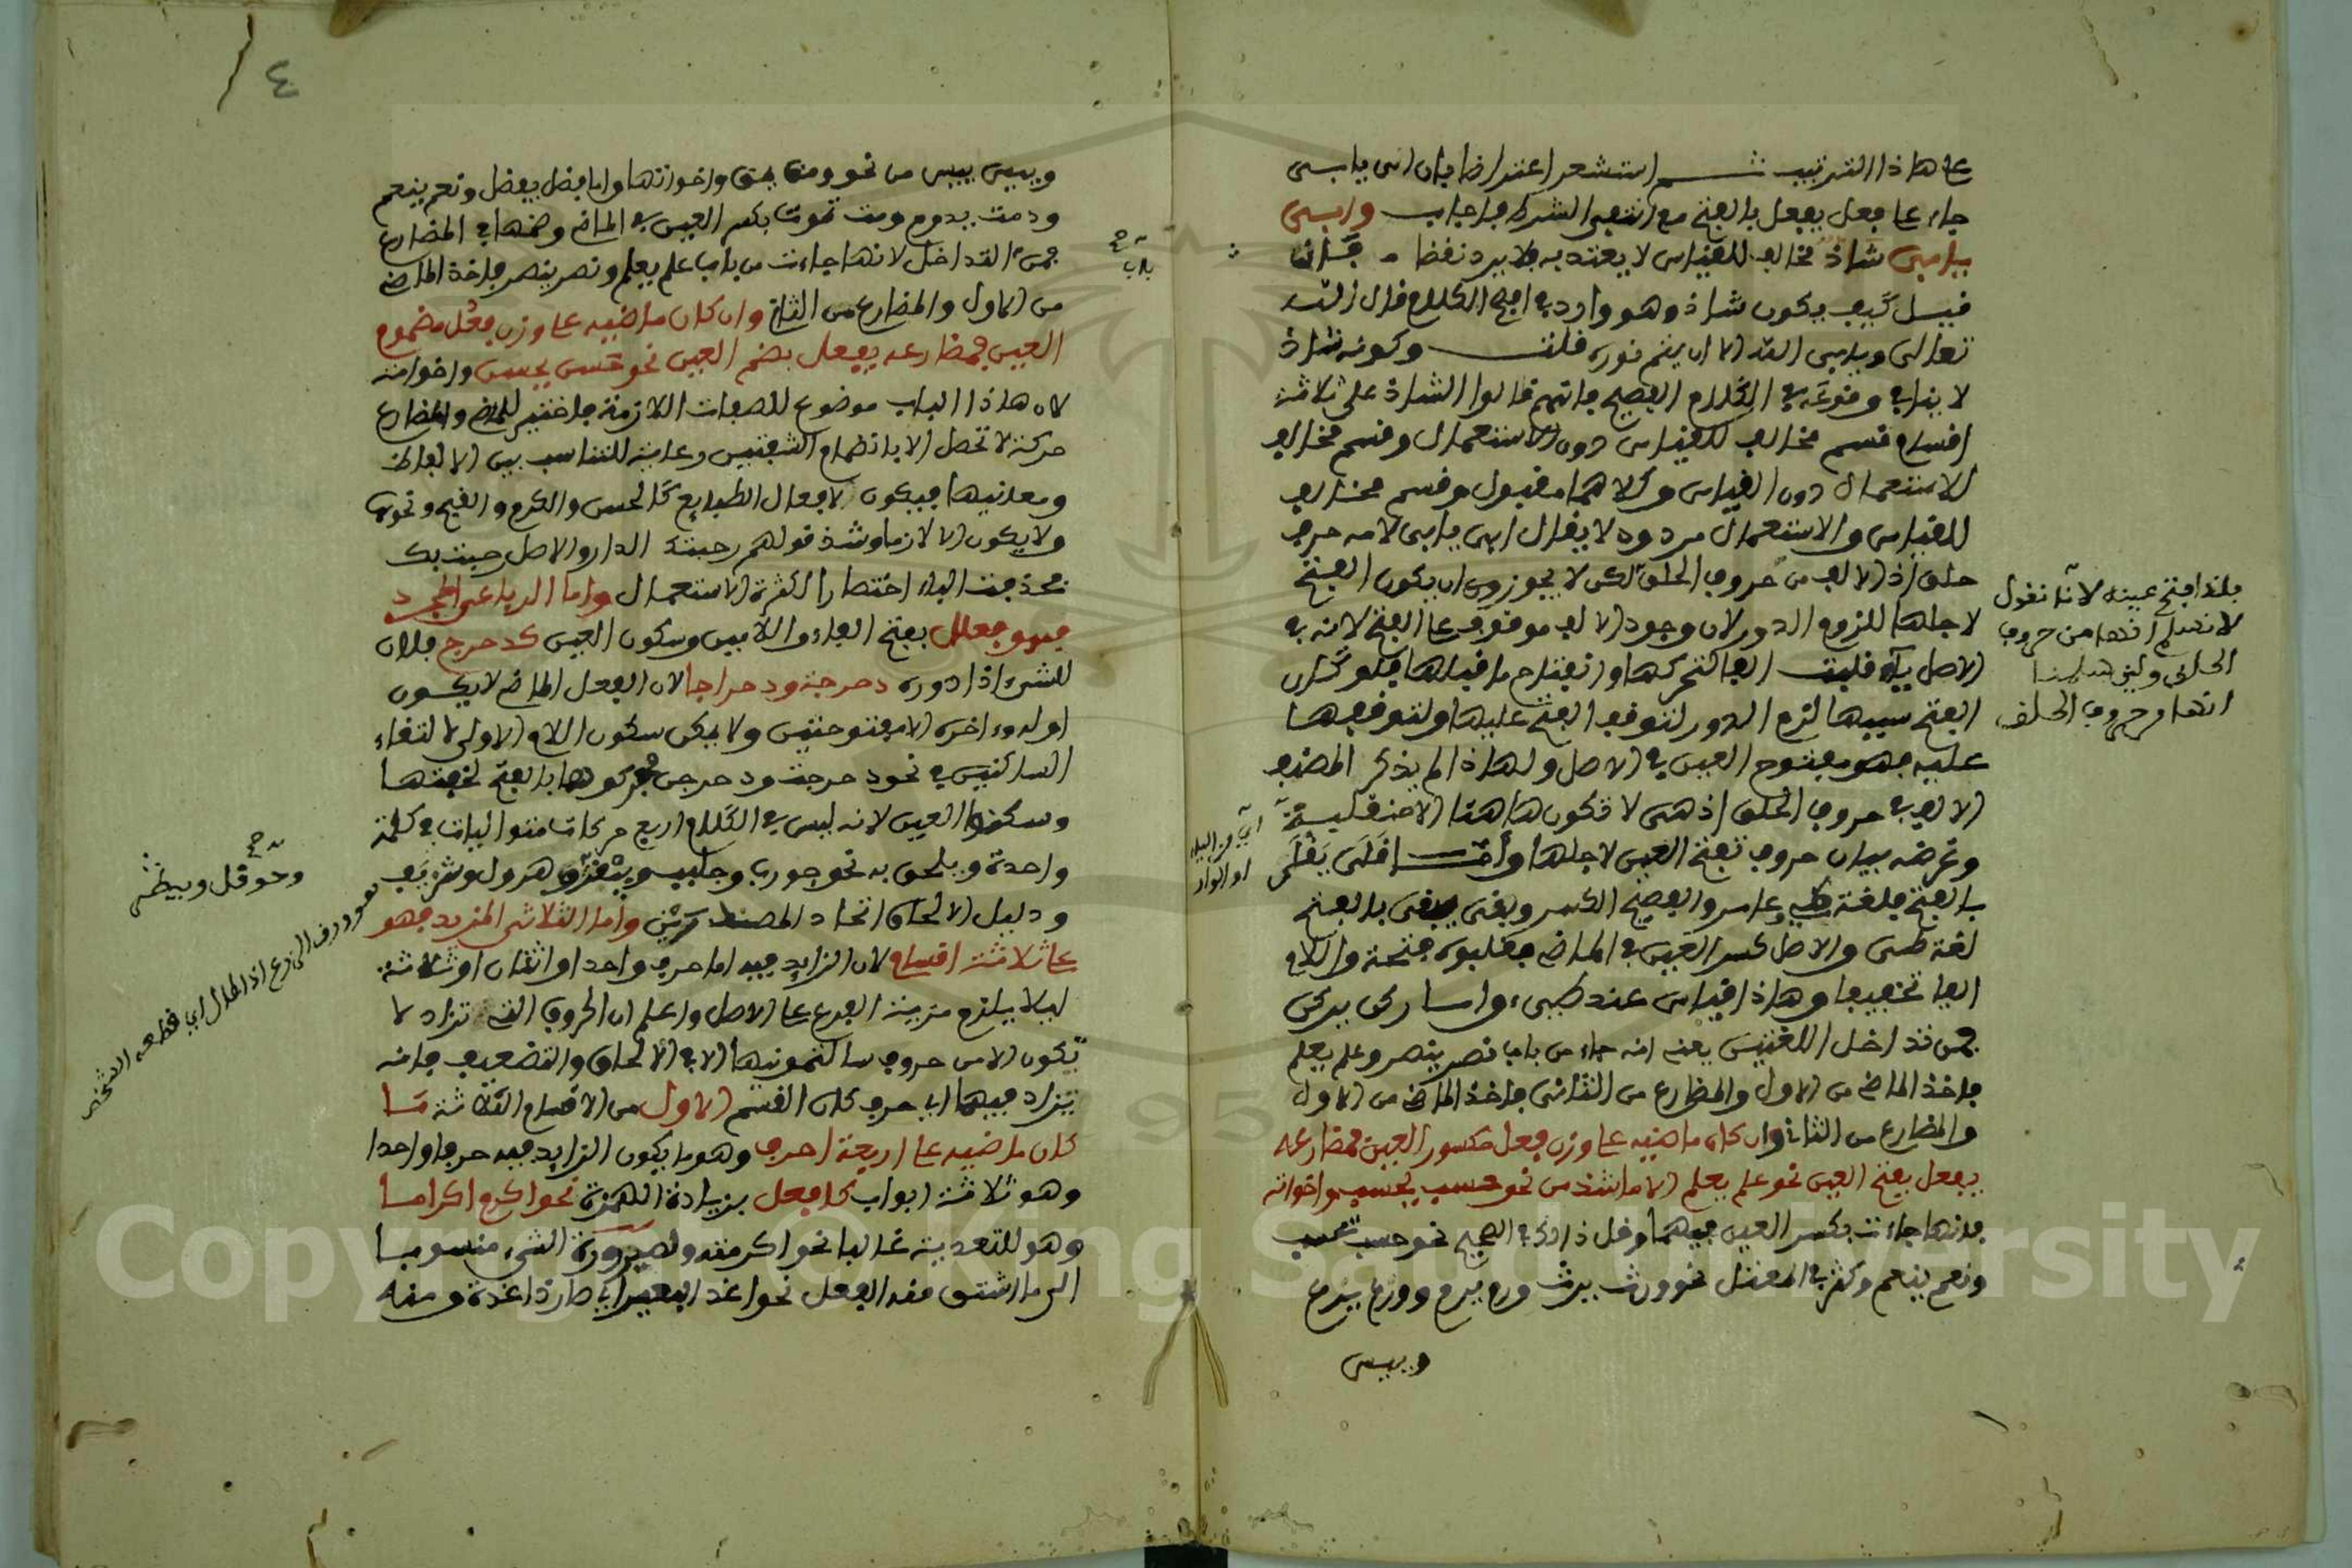 على هاذا الترتيب ثم استشعر اعتراضا بان ابى يابى
جاء على فعل يفعل بالفتح مع انتفى الشرك فاجاب وابى
يابى شاذ مخالف للقياس لا يعتد به فلا يرد نقضا فان
قيل كيف يكون شاذ وهو وارد في افصح الكلام قال الله
تعالى ويابى الله الا ان يتم نوره قلت وكونه شاذ
لا ينافي وقوعه في الكلام الفصيح فانهم قالوا الشاذ على ثلاثة
اقسام قسم مخالف للقياس دون الاستعمال وقسم مخالف
الاستعمال دون القياس وكلاهما مقبول وقسم مخالف
للقياس والاستعمال مردود لا يقال ابى يابى لامه حرف
حلق اذ الالف من حروف الحلق لكن لا يجوزون ان يكون الفتح
لاجلها للزوم الدور لان وجود الالف موقوف على الفتح لانه في
الاصل ياء قلبت الفا لتحركها وانفتاح ما قبلها فلو كان
الفتح سببها لزم الدور لتوقف الفتح عليها ولتوقفها
عليه فهو مفتوح العين في الاصل ولهاذا لم يذكر المصنف
الالف في حروف الحلق اذ هي لا تكون هاهنا الا منقلبة
وغرضه بيان حروف تفتح العين لاجلها وأما قلى يقلى
بالفتح فلغة عامر والفصيح الكسر وبقى يبقى بالفتح
لغة طيى والاصل كسر العين في الماضي فقلبوه فتحة واللام
الفا تخفيفا وهاذا قياس عند طيىء واما ركن يركن
فمن تداخل اللغتين يعني انه جاء من باب نصر ينصر وعلم يعلم
فاخذ الماضي من الاول والمضارع من الثاني فاخذ الماضي من الاول
والمضارع من الثاني وان كان ماضيه على وزن فعل مكسور العين فمضارعه
يفعل بفتح العين نحو علم يعلم الا ما شذ من نحو حسب يحسب واخواته
فانها جاءت بكسر العين فيهما وقل ذالك في الصحيح نحو حسب يحسب
ونعم ينعم وكثر في المعتل نحو ورث يرث وورم يرم وورع يرع
ويبس
فلذا فتح عينه لانا نقول
لا نسلم انها من حروف
الحلق ولين سلمنا
انها من حروف الحلق
اي من الياء
او الواو
٤
ويبس ييبس من نحو ومق يمق واخواتها واما فضل يفضل ونعم ينعم
ودمت يدوم ومت تموت بكسر العين في الماضي وضمها في المضارع
فمن التداخل لانها جاءت من باب علم يعلم ونصر ينصر فاخذ الماضي
من الاول والمضارع من الثاني وان كان ماضيه على وزن فعل مضموم
العين فمضارعه يفعل بضم العين نحو حسن يحسن واخواته
لان هاذا الباب موضوع للصفات اللازمة فاختير للماضي والمضارع
حركة لا تحصل الا بانضمام الشفتين رعاية للتناسب بين الالفاظ
ومعانيها فيكون لافعال الطبايع كالحسن والكرم والقبح ونحوها
ولا يكون الا لازما وشذ قولهم رحبتك الدار والاصل رحبت بك
فحذفت الباء اختصارا لكثرة الاستعمال واما الرباعي المجرد
فهو فعلل بفتح الفاء واللامين وسكون العين كدحرج فلان
للشيء اذا دوره دحرجة ودحراجا لان الفعل الماضي لا يكون
اوله واخره الا مفتوحتين ولا يمكن سكون اللام الاولى لالتقاء
الساكنين في نحو دحرجت ودحرجن فحركوها بالفتح لخفتها
وسكنوا العين لانه ليس في الكلام اربع حركات متواليات في كلمة
واحدة ويلحق به نحو جورب وجلبب وبيطر وهرول وشريف
ودليل الالحاق اتحاد المصدرين وأما الثلاثي المزيد فهو
على ثلاثة اقسام لان الزايد فيه اما حرف واحد او اثنان او ثلاثة
ليلا يلزم مزية الفرع على الاصل واعلم ان الحروف التي تزاد لا
تكون الا من حروف سالتمونيها الا في الالحاق والتضعيف فانه
يزاد فيهما اي حرف كان القسم الاول من الاقسام الثلاثة ما
كان ماضيه على اربعة احرف وهو ما يكون الزايد فيه حرفا واحدا
وهو ثلاثة ابواب كافعل بزيادة الهمزة نحو اكرم اكراما
وهو للتعدية غالبا نحو اكرمته ولصيرورة الشيء منسوبا
الى ما اشتق منه الفعل نحو اغد البعير اي صار ذا غدة ومنه
باب
وحوقل وبيطر